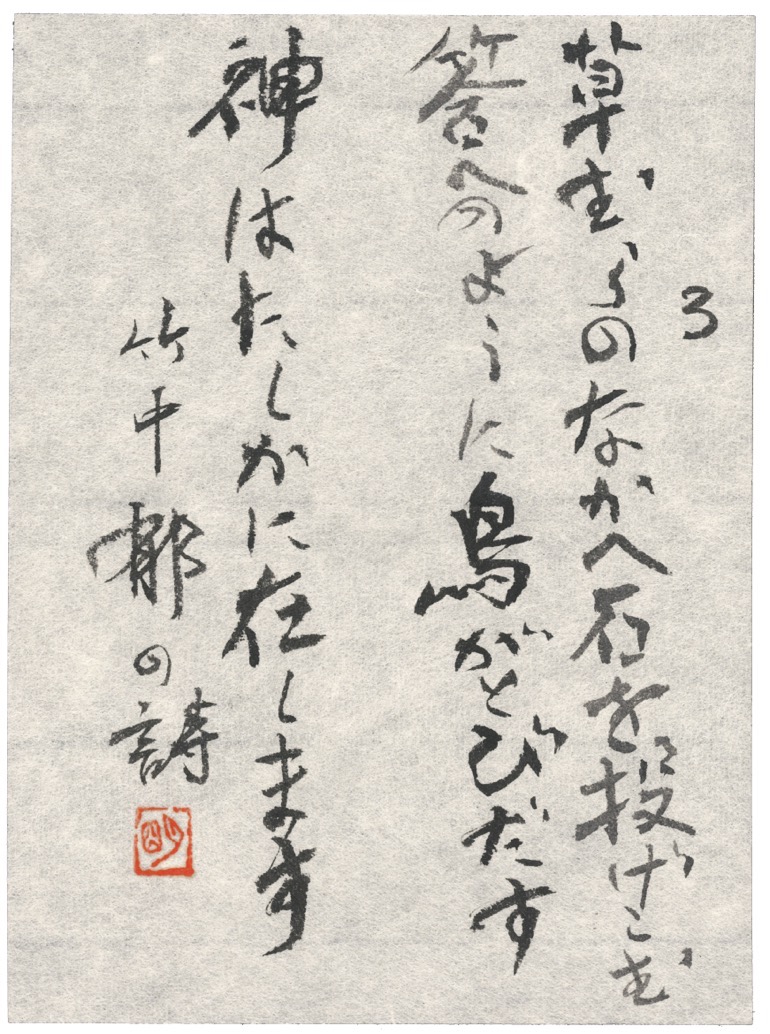 3
草むらのなかへ石を投げこむ
答へのように鳥がとびだす
神はたしかに在します
竹中郁の詩